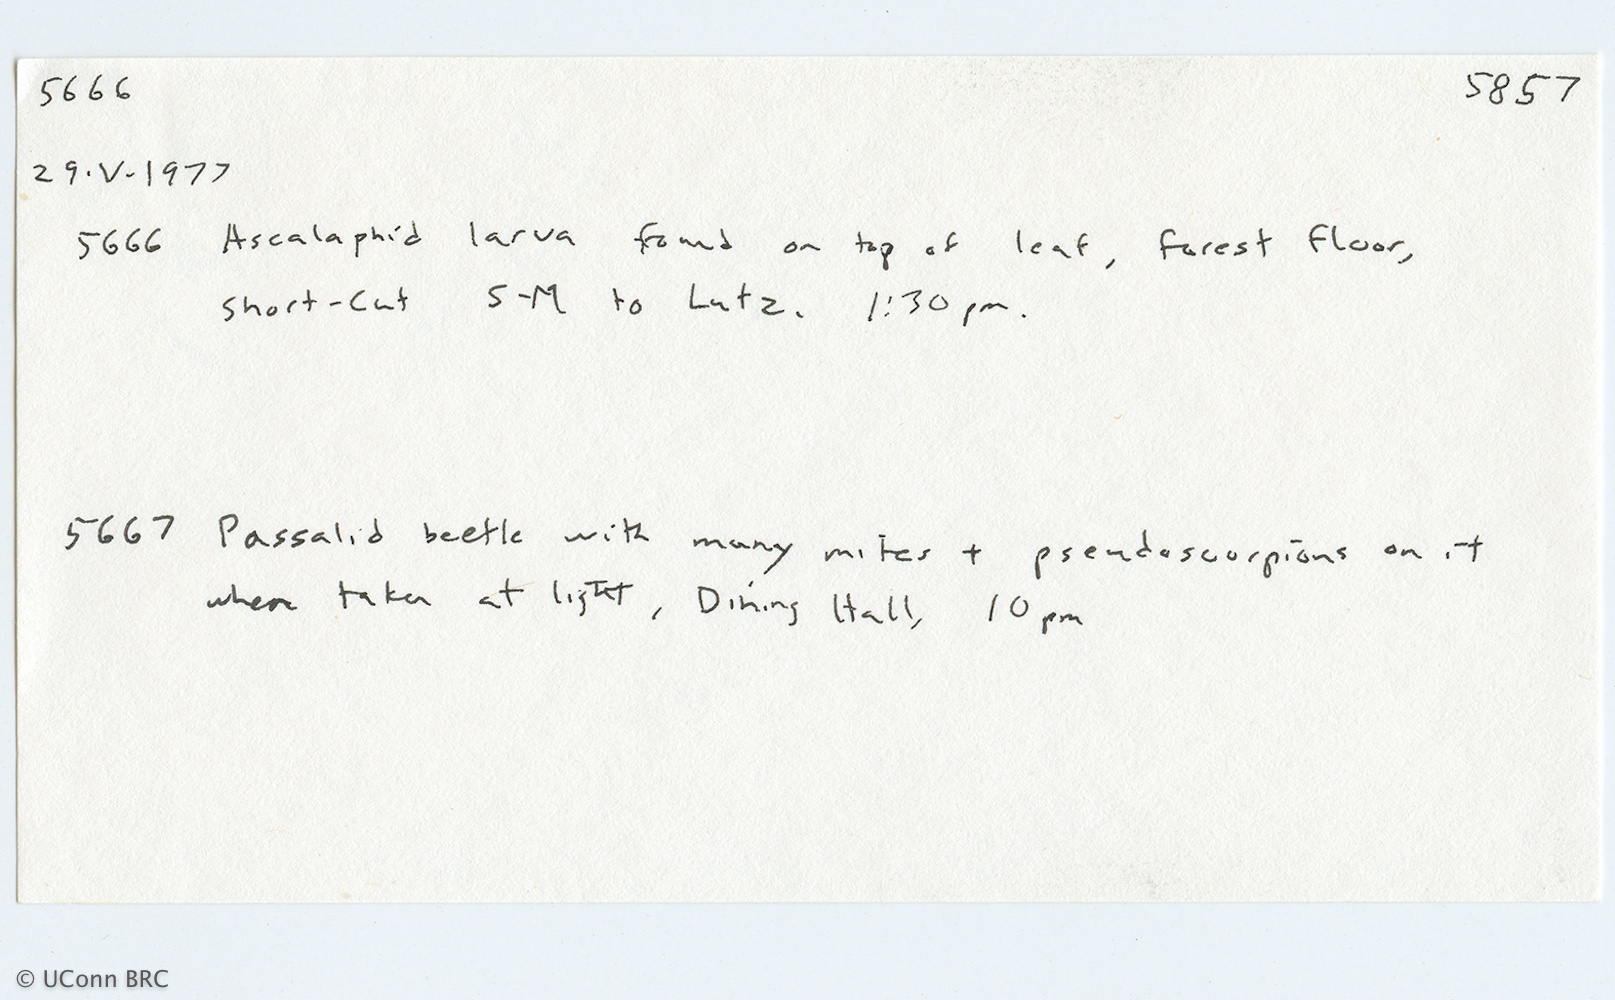 5666 5857
29.V-1977
5666 Ascalaphid larva found on top of leaf, forest floor,
short-cut S-M to Lutz. 1:30 pm.
5667 Passalid beetle with many mites + pseudoscorpions on it
when taken at light, Dining Hall, 10 pm
© UConn BRC